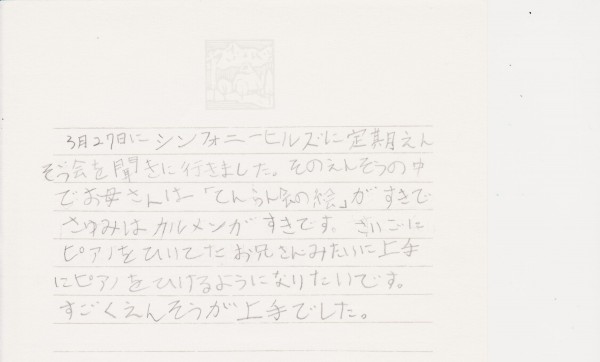 3月27日にシンフォニーヒルズに定期えん
そう会を聞きに行きました。そのえんそうの中
でお母さんは「てんらん会の絵」がすきで
さゆみはカルメンがすきです。さいごに
ピアノをひいてたお兄さんみたいに上手
にピアノをひけるようになりたいです。
すごくえんそうが上手でした。